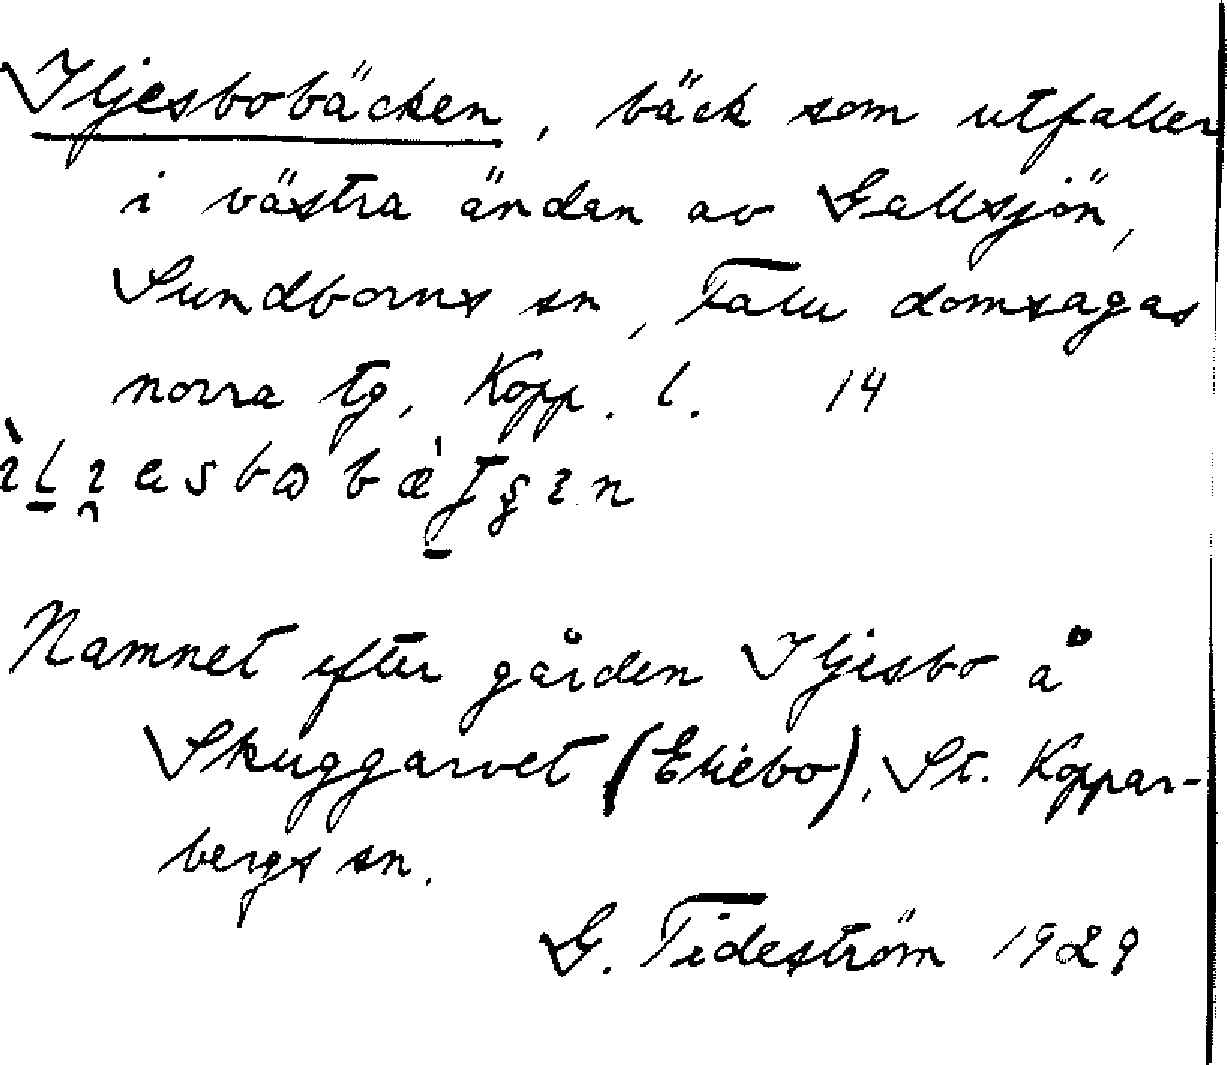 Iljesbobäcken, bäck som utfaller
i västra ändan av Gallsjön,
Sundborns sn, Falu domsagas
norra tg, Kopp. l. 14
Namnet efter gården Iljesbo å
Skuggarvet (Ekiebo), St. Koppar-
bergs sn.
G. Tideström 1929